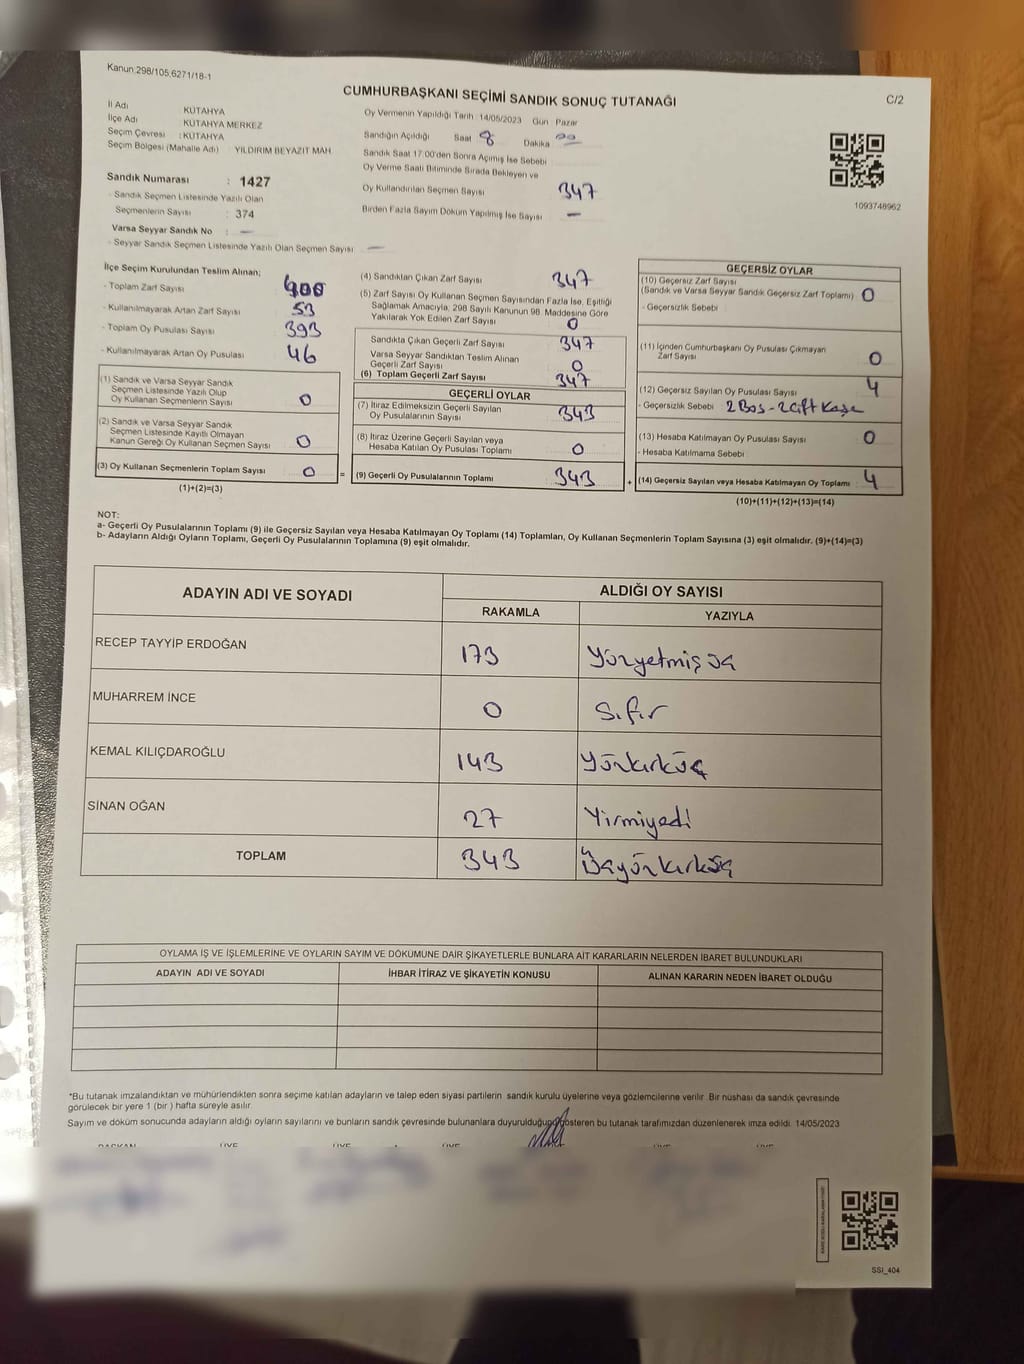 Kanun 298/105,6271/18-1
CUMHURBAŞKANI SEÇİMİ SANDIK SONUÇ TUTANAĞI
C/2
İl Adı KÜTAHYA
İlçe Adı KÜTAHYA MERKEZ
Seçim Çevresi : KÜTAHYA
Seçim Bölgesi (Mahalle Adı) : YILDIRIM BEYAZIT MAH.
Oy Vermenin Yapıldığı Tarih 14/05/2023 Gün Pazar
Sandığın Açıldığı Saat 8 Dakika 00
Sandık Saat 17.00'den Sonra Açılmış İse Sebebi
Oy Verme Saati Bitiminde Sırada Bekleyen ve
Oy Kullandırılan Seçmen Sayısı 347
Birden Fazla Sayım Döküm Yapılmış İse Sayısı —
1093748962
Sandık Numarası : 1427
- Sandık Seçmen Listesinde Yazılı Olan
Seçmenlerin Sayısı : 374
Varsa Seyyar Sandık No : —
- Seyyar Sandık Seçmen Listesinde Yazılı Olan Seçmen Sayısı —
İlçe Seçim Kurulundan Teslim Alınan;
- Toplam Zarf Sayısı 400
- Kullanılmayarak Artan Zarf Sayısı 53
- Toplam Oy Pusulası Sayısı 393
- Kullanılmayarak Artan Oy Pusulası 46
(1) Sandık ve Varsa Seyyar Sandık
Seçmen Listesinde Yazılı Olup
Oy Kullanan Seçmenlerin Sayısı 0
(2) Sandık ve Varsa Seyyar Sandık
Seçmen Listesinde Kayıtlı Olmayan
Kanun Gereği Oy Kullanan Seçmen Sayısı 0
(3) Oy Kullanan Seçmenlerin Toplam Sayısı 0
(1)+(2)=(3)
(4) Sandıktan Çıkan Zarf Sayısı 347
(5) Zarf Sayısı Oy Kullanan Seçmen Sayısından Fazla İse, Eşitliği
Sağlamak Amacıyla, 298 Sayılı Kanunun 98. Maddesine Göre
Yakılarak Yok Edilen Zarf Sayısı 0
Sandıkta Çıkan Geçerli Zarf Sayısı 347
Varsa Seyyar Sandıktan Teslim Alınan
Geçerli Zarf Sayısı 0
(6) Toplam Geçerli Zarf Sayısı 347
GEÇERLİ OYLAR
(7) İtiraz Edilmeksizin Geçerli Sayılan
Oy Pusulalarının Sayısı 343
(8) İtiraz Üzerine Geçerli Sayılan veya
Hesaba Katılan Oy Pusulası Toplamı 0
= (9) Geçerli Oy Pusulalarının Toplamı 343
GEÇERSİZ OYLAR
(10) Geçersiz Zarf Sayısı
(Sandık ve Varsa Seyyar Sandık Geçersiz Zarf Toplamı) 0
- Geçersizlik Sebebi
(11) İçinden Cumhurbaşkanı Oy Pusulası Çıkmayan
Zarf Sayısı 0
(12) Geçersiz Sayılan Oy Pusulası Sayısı 4
- Geçersizlik Sebebi 2 Boş - 2 Çift Kaşe
(13) Hesaba Katılmayan Oy Pusulası Sayısı 0
- Hesaba Katılmama Sebebi
+ (14) Geçersiz Sayılan veya Hesaba Katılmayan Oy Toplamı 4
(10)+(11)+(12)+(13)=(14)
NOT:
a- Geçerli Oy Pusulalarının Toplamı (9) ile Geçersiz Sayılan veya Hesaba Katılmayan Oy Toplamı (14) Toplamları, Oy Kullanan Seçmenlerin Toplam Sayısına (3) eşit olmalıdır. (9)+(14)=(3)
b- Adayların Aldığı Oyların Toplamı, Geçerli Oy Pusulalarının Toplamına (9) eşit olmalıdır.
ADAYIN ADI VE SOYADI ALDIĞI OY SAYISI
RAKAMLA YAZIYLA
RECEP TAYYİP ERDOĞAN 173 Yüzyetmişüç
MUHARREM İNCE 0 Sıfır
KEMAL KILIÇDAROĞLU 143 Yüzkırküç
SİNAN OĞAN 27 Yirmiyedi
TOPLAM 343 Üçyüzkırküç
OYLAMA İŞ VE İŞLEMLERİNE VE OYLARIN SAYIM VE DÖKÜMÜNE DAİR ŞİKAYETLERLE BUNLARA AİT KARARLARIN NELERDEN İBARET BULUNDUKLARI
ADAYIN ADI VE SOYADI İHBAR İTİRAZ VE ŞİKAYETİN KONUSU ALINAN KARARIN NEDEN İBARET OLDUĞU
*Bu tutanak imzalandıktan ve mühürlendikten sonra seçime katılan adayların ve talep eden siyasi partilerin sandık kurulu üyelerine veya gözlemcilerine verilir. Bir nüshası da sandık çevresinde
görülecek bir yere 1 (bir) hafta süreyle asılır.
Sayım ve döküm sonucunda adayların aldığı oyların sayılarını ve bunların sandık çevresinde bulunanlara duyurulduğunu gösteren bu tutanak tarafımızdan düzenlenerek imza edildi. 14/05/2023
BAŞKAN ÜYE ÜYE ÜYE ÜYE
SSI_404